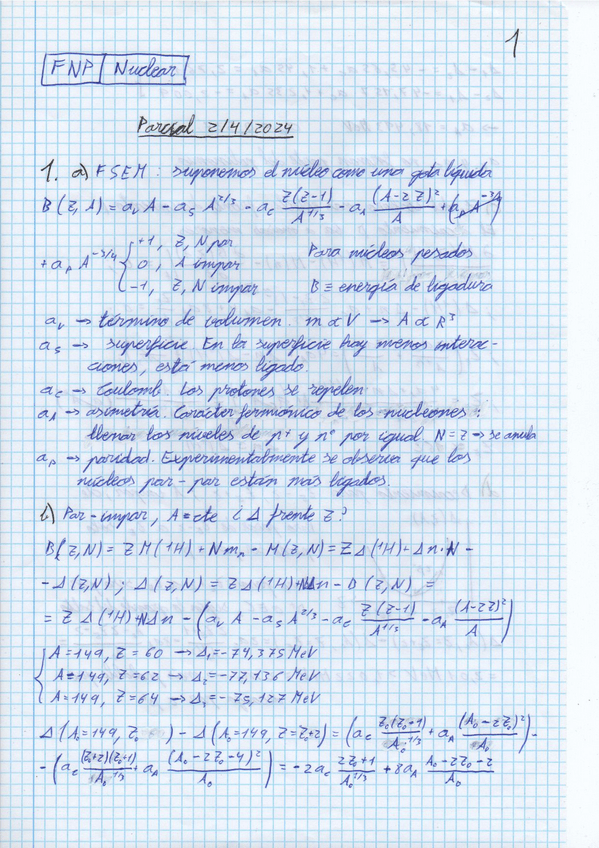 1
FNP | Nuclear
Parcial 2/4/2024
1. a) FSEM : suponemos el núcleo como una gota líquida
B(Z,A) = a_v A - a_s A^{2/3} - a_c \frac{Z(Z-1)}{A^{1/3}} - a_A \frac{(A-2Z)^2}{A} +
+ a_p A^{-3/4} { +1, Z, N par
0, A impar
-1, Z, N impar
Para núcleos pesados
B ≡ energía de ligadura
a_v → término de volumen. m ∝ V → A ∝ R^3
a_s → superficie. En la superficie hay menos interac-
ciones, está menos ligado
a_c → Coulomb. Los protones se repelen
a_A → asimetría. Carácter fermiónico de los nucleones ;
llenar los niveles de p^+ y n^0 por igual. N = Z → se anula
a_p → paridad. Experimentalmente se observa que los
núcleos par-par están más ligados.
b) Par-impar, A = cte ¿ Δ frente Z ?
B(Z,N) = Z M(1H) + N m_n - M(Z,N) = Z Δ(1H) + Δn·N -
- Δ(Z,N) ; Δ(Z,N) = Z Δ(1H) + NΔn - B(Z,N) =
= Z Δ(1H) + NΔn - (a_v A - a_s A^{2/3} - a_c \frac{Z(Z-1)}{A^{1/3}} - a_A \frac{(A-2Z)^2}{A})
{ A = 149, Z = 60 → Δ_1 = -74,375 MeV
A = 149, Z = 62 → Δ_2 = -77,136 MeV
A = 149, Z = 64 → Δ_3 = -75,127 MeV
Δ(A_0=149, Z_0) - Δ(A_0=149, Z=Z_0+2) = (a_c \frac{Z_0(Z_0-1)}{A_0^{1/3}} + a_A \frac{(A_0-2Z_0)^2}{A_0}) -
- (a_c \frac{(Z_0+2)(Z_0+1)}{A_0^{1/3}} + a_A \frac{(A_0-2Z_0-4)^2}{A_0}) = -2a_c \frac{2Z_0+1}{A_0^{1/3}} + 8a_A \frac{A_0-2Z_0-2}{A_0}